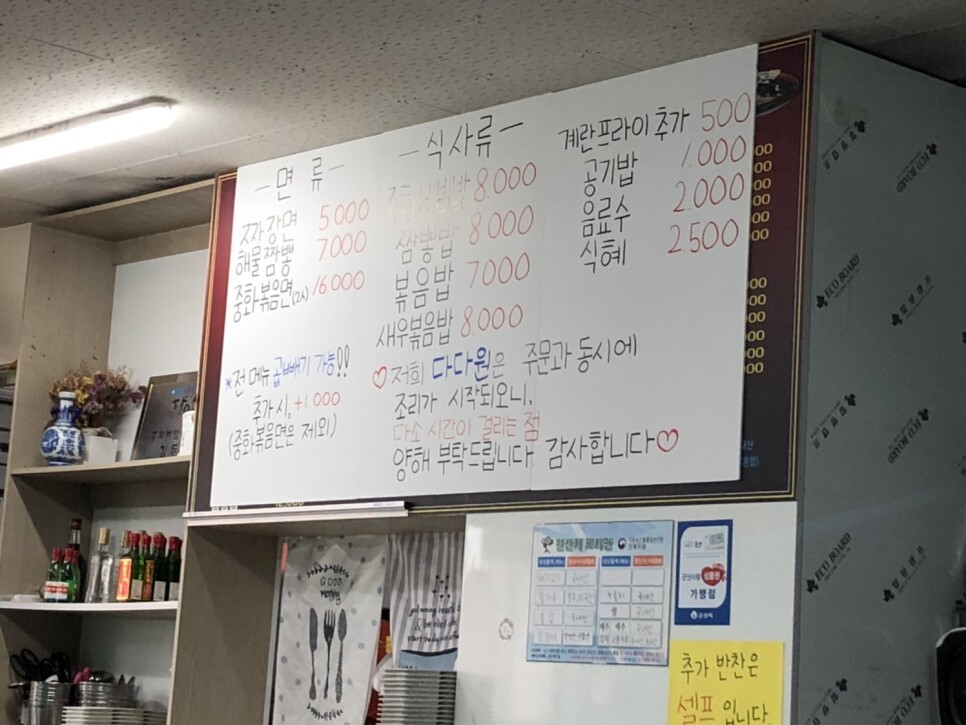 - 면 류 -
짜장면 5000
해물짬뽕 7000
중화볶음면(2人) 16000
*전 메뉴 곱빼기 가능!!
추가 시, +1000
(중화볶음면은 제외)
- 식사류 -
비빔밥 8.000
짬뽕밥 8000
볶음밥 7000
새우볶음밥 8000
♡저희 다다원은 주문과 동시에
조리가 시작되오니,
다소 시간이 걸리는 점
양해 부탁드립니다 감사합니다♡
계란프라이 추가 500
공기밥 1.000
음료수 2.000
식혜 2500
GOOD
ECO BOARD
ECO BOARD
가맹점
군산시
추가 반찬은
셀프 입니다.